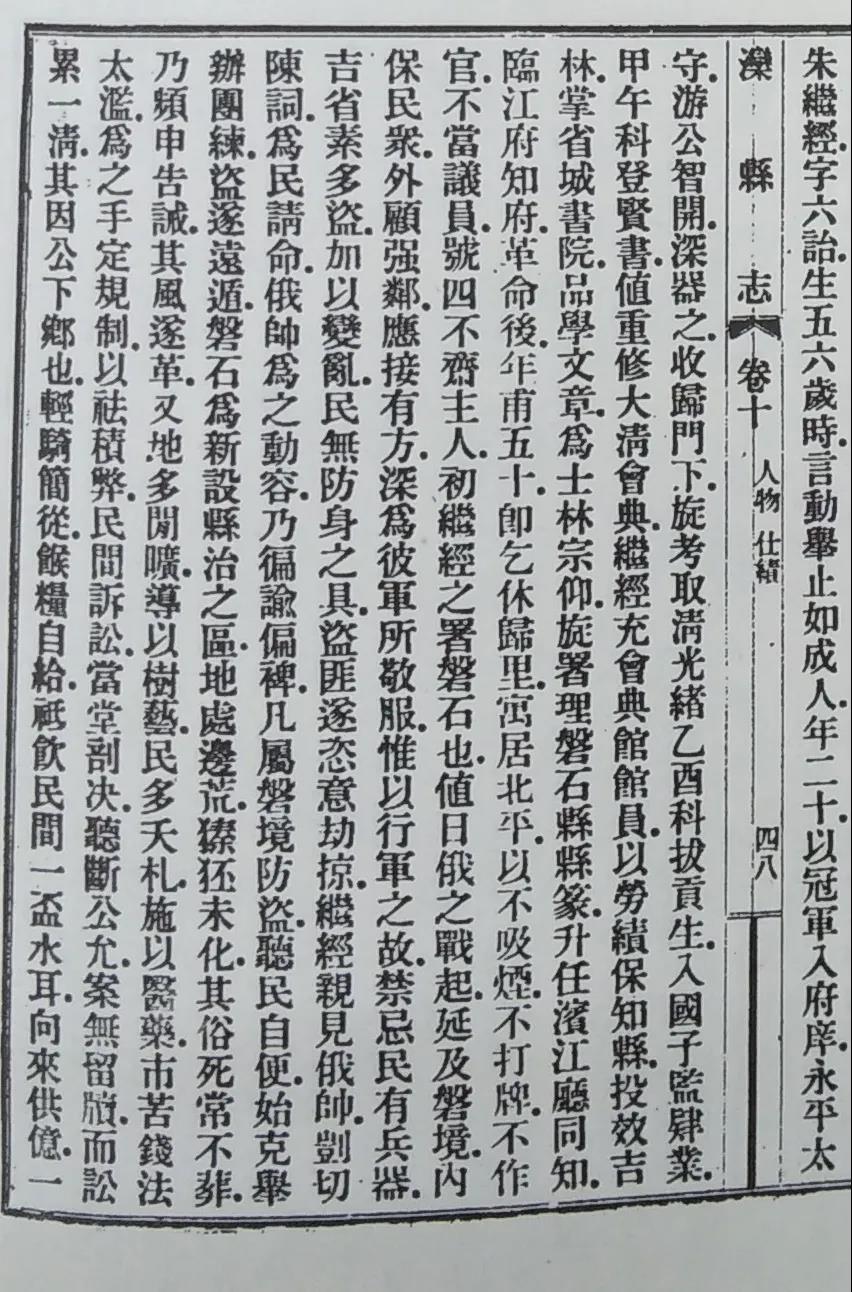 朱繼經.字六詒.生五六歲時.言動舉止如成人.年二十.以冠軍入府庠.永平太
灤縣志 卷十 人物 仕績 四八
守.游公智開.深器之.收歸門下.旋考取淸光緒乙酉科拔貢生.入國子監肄業.
甲午科登賢書.値重修大淸會典.繼經充會典館館員.以勞績保知縣.投效吉
林.掌省城書院.品學文章.爲士林宗仰.旋署理磐石縣縣篆.升任濱江廳同知.
臨江府知府.革命後.年甫五十.卽乞休歸里.寓居北平.以不吸煙.不打牌.不作
官.不當議員.號四不齋主人.初繼經之署磐石也.値日俄之戰起.延及磐境.內
保民衆.外顧强鄰.應接有方.深爲彼軍所敬服.惟以行軍之故.禁忌民有兵器.
吉省素多盜.加以變亂.民無防身之具.盜匪遂恣意劫掠.繼經親見俄帥.剴切
陳詞.爲民請命.俄帥爲之動容.乃徧諭偏裨.凡屬磐境防盜.聽民自便.始克舉
辦團練.盜遂遠遁.磐石爲新設縣治之區.地處邊荒.獉狉未化.其俗死常不葬.
乃頻申告誡.其風遂革.又地多閒曠.導以樹藝.民多夭札.施以醫藥.市苦錢法
太濫.爲之手定規制.以祛積弊.民間訴訟.當堂剖决.聽斷公允.案無留牘.而訟
累一淸.其因公下鄕也.輕騎簡從.餱糧自給.祗飮民間一盃水耳.向來供億.一